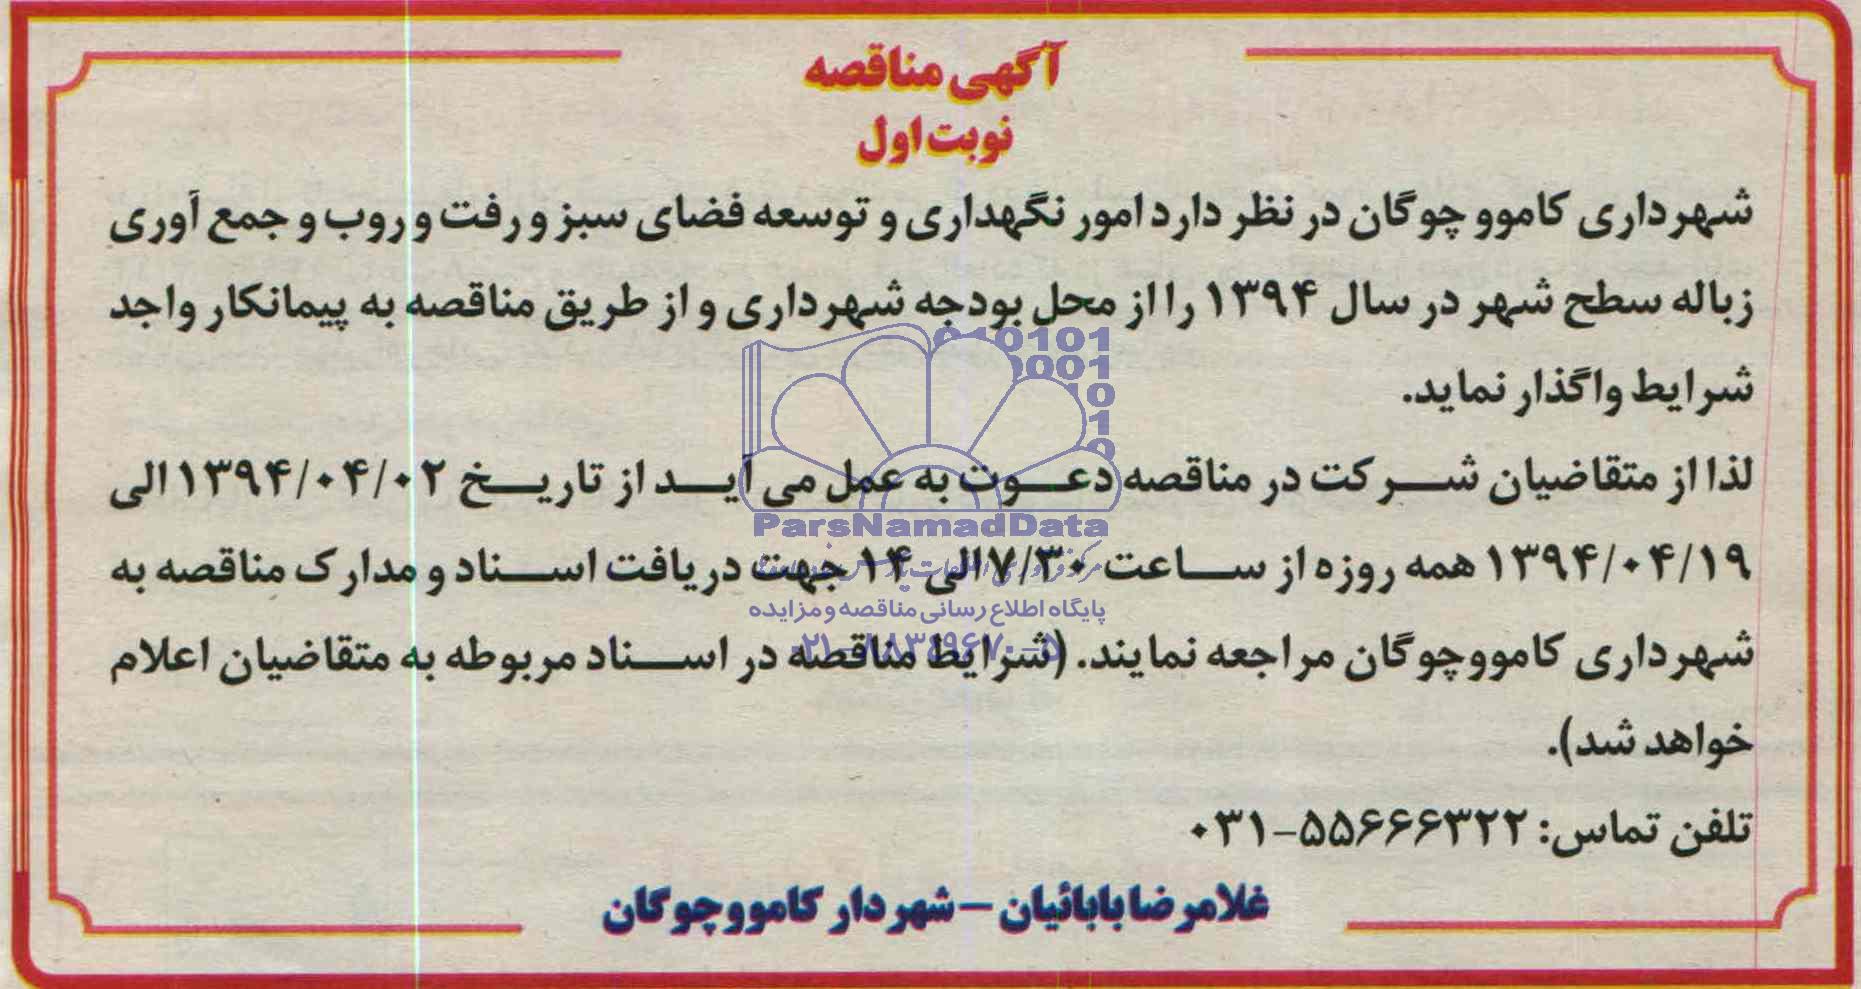 آگهی مناقصه
نوبت اول
شهرداری کاموو چوگان در نظر دارد امور نگهداری و توسعه فضای سبز و رفت و روب و جمع آوری
زباله سطح شهر در سال ۱۳۹۴ را از محل بودجه شهرداری و از طریق مناقصه به پیمانکار واجد
شرایط واگذار نماید.
لذا از متقاضیان شرکت در مناقصه دعوت به عمل می آید از تاریخ ۱۳۹۴/۰۴/۰۲ الی
۱۳۹۴/۰۴/۱۹ همه روزه از ساعت ۷/۳۰ الی ۱۴ جهت دریافت اسناد و مدارک مناقصه به
شهرداری کاموو چوگان مراجعه نمایند. (شرایط مناقصه در اسناد مربوطه به متقاضیان اعلام
خواهد شد).
تلفن تماس: ۰۳۱-۵۵۶۶۶۳۲۲
غلامرضا بابائیان – شهردار کاموو چوگان
010101
0001
10
10
0
ParsNamadData
پایگاه اطلاع رسانی مناقصه و مزایده
۰۲۱-۸۸۳۴۹۶۷۰-۵